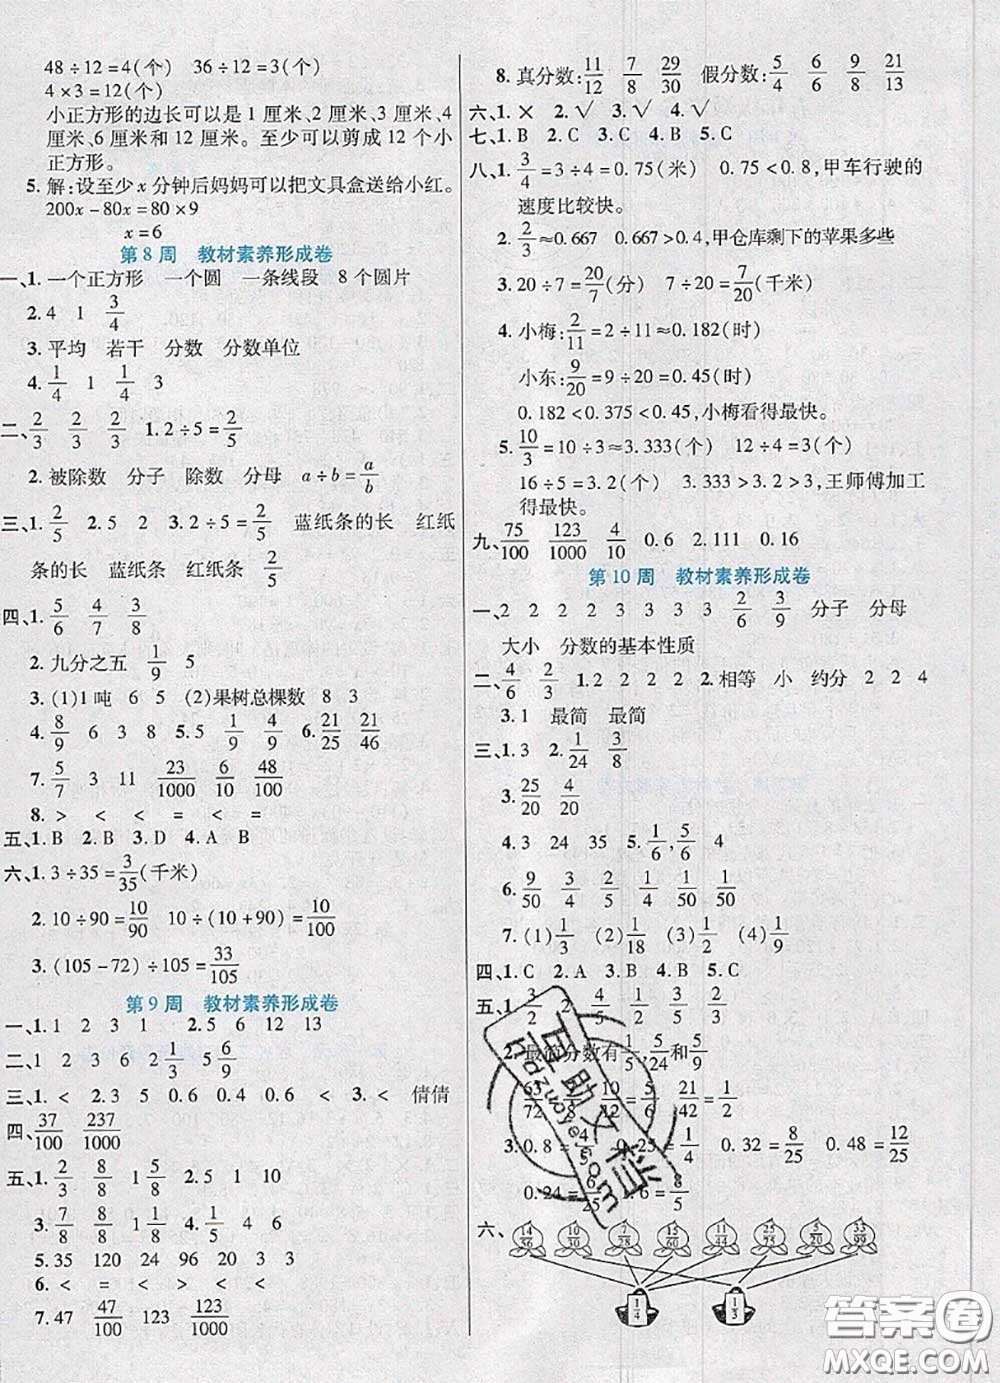 48÷12=4(个)　36÷12=3(个)
4×3=12(个)
小正方形的边长可以是 1 厘米、2 厘米、3 厘米、4
厘米、6 厘米和 12 厘米。至少可以剪成 12 个小
正方形。
5. 解:设至少 x 分钟后妈妈可以把文具盒送给小红。
200x-80x=80×9
x=6
第 8 周　教材素养形成卷
一、1. 一个正方形　一个圆　一条线段　8 个圆片
2. 4　1　3/4
3. 平均　若干　分数　分数单位
4. 1/4　1　1/4　3
二、2/3　2/3　2/3　1. 2÷5=2/5
2. 被除数　分子　除数　分母　a÷b=a/b
三、1. 2/5　2. 5　2　3. 2÷5=2/5　蓝纸条的长　红纸
条的长　蓝纸条　红纸条　2/5
四、1. 5/6　4/7　3/8
2. 九分之五　1/9　5
3. (1)1 吨　6　5　(2)果树总棵数　8　3
4. 8/9　6　3　8　5. 5　1/9　4/9　6. 21/25　21/46
7. 5/7　3　11　23/1000　6/10　12/100
8. >　<　<　=　<
五、1. B　2. B　3. D　4. A　5. B
六、1. 3÷35=3/35(千米)
2. 10÷90=10/90　10÷(10+90)=10/100
3. (105-72)÷105=33/105
第 9 周　教材素养形成卷
一、1. 1　2　3　1　2. 5　6　12　13
二、1　2　3　6　2　1/3　5　6/9
三、1. <　2. 3　5　0.6　0.4　0.6　<　3. <　倩倩
四、37/100　237/1000
五、1. 2/3　8/8　1 5/8　2. 5　1　10
3. 7/8　8/8　1 1/8　4. 1/5　4　6
5. 35　120　24　96　20　3
6. <　<　=　=　>　<　<　<
7. 47　47/100　123　123/1000
8. 真分数:11/12　7/8　29/30　假分数:5/4　6/6　9/8　21/13
六、1. ×　2. √　3. √　4. √
七、1. B　2. C　3. B　4. B　5. C
八、1. 3/4=3÷4=0.75(米)　0.75<0.8,甲车行驶的
速度比较快。
2. 2/3≈0.667　0.667>0.4,甲仓库剩下的苹果多些
3. 20÷7=20/7(分)　7÷20=7/20(千米)
4. 小梅:2/11=2÷11≈0.182(时)
小东:9/20=9÷20=0.45(时)
0.182<0.375<0.45,小梅看得最快。
5. 10/3=10÷3≈3.333(个)　12÷4=3(个)
16÷5=3.2(个)　3.333>3.2>3,王师傅加工
得最快。
九、75/100　123/1000　4/10　0.6　2.111　0.16
第 10 周　教材素养形成卷
一、2　2　2　2　3　3　3　3　2/6　3/9　分子　分母
大小　分数的基本性质
二、4/6　2/3　1. 2　2　2　2　2. 相等　小　约分　2　2　4
3. 1　最简　最简
三、1. 3　2. 1/24　3/8
3. 25/20　4/20
4. 3　24　35　5. 1/6,5/6　4
6. 9/50　3/50　4/25　6/25　1/50
7. (1)1/3　(2)1/18　(3)1/2　(4)1/9
四、1. C　2. A　3. B　4. B　5. C
五、1. 3/2　2　4/5　1/5　2/3　2/3
2. 最简分数有1/5,5/24和5/9
3. 0.8=4/5　0.25=1/4　0.32=8/25　0.48=12/25
0.24=6/25　1.6=8/5
六、14/56　10/30　7/28　15/60　11/44　25/75　5/20　33/99
1/4　1/3
百助文档
答案圈
MXQE.COM